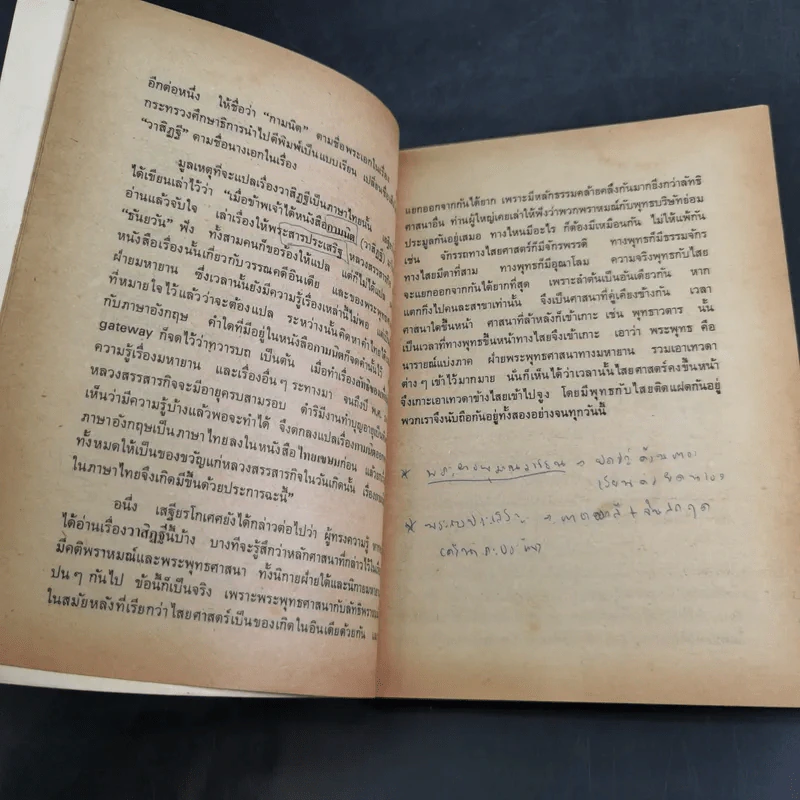 อีกต่อหนึ่ง ให้ชื่อว่า "กามนิต" ตามชื่อพระเอกในเรื่อง
กระทรวงศึกษาธิการนำไปตีพิมพ์เป็นแบบเรียน เปลี่ยนชื่อ
"วาสิฏฐี" ตามชื่อนางเอกในเรื่อง
มูลเหตุที่จะแปลเรื่องวาสิฏฐีเป็นภาษาไทยนั้น
ได้เขียนเล่าไว้ว่า "เมื่อข้าพเจ้าได้หนังสือกามนิต (วาสิฏฐี)
อ่านแล้วจับใจ เล่าเรื่องให้พระสารประเสริฐ หลวงสรรสารกิจ
"ธันยวัน" ฟัง ทั้งสามคนก็ขอร้องให้แปล แต่ก็ไม่ได้แปล
หนังสือเรื่องนั้นเกี่ยวกับวรรณคดีอินเดีย และของพระพุทธ
ฝ่ายมหายาน ซึ่งเวลานั้นยังมีความรู้เรื่องเหล่านี้ไม่พอ แต่
ที่หมายใจไว้แล้วว่าจะต้องแปล ระหว่างนั้นคิดหาคำไทยได้
กับภาษาอังกฤษ คำใดที่มีอยู่ในหนังสือกามนิตก็จดคำนั้นไว้
gateway ก็จดไว้ว่าทวารบถ เป็นต้น เมื่อทำเรื่องลัทธิของ
ความรู้เรื่องมหายาน และเรื่องอื่นๆ ระทางมา จนถึงปี พ.ศ.
หลวงสรรสารกิจจะมีอายุครบสามรอบ ดำริมีงานทำบุญอายุ
เห็นว่ามีความรู้บ้างแล้วพอจะทำได้ จึงตกลงแปลเรื่องกามนิต
ภาษาอังกฤษเป็นภาษาไทยลงในหนังสือไทยเขษมก่อน แล้ว
ทั้งหมดให้เป็นของขวัญแก่หลวงสรรสารกิจในวันเกิดนั้น เรื่อง
ในภาษาไทยจึงเกิดมีขึ้นด้วยประการฉะนี้"
อนึ่ง เสฐียรโกเศศยังได้กล่าวต่อไปว่า ผู้ทรงความรู้
ได้อ่านเรื่องวาสิฏฐีนี้บ้าง บางทีจะรู้สึกว่าหลักศาสนาที่กล่าวไว้ใน
มีคติพราหมณ์และพระพุทธศาสนา ทั้งนิกายฝ่ายใต้และนิกาย
ปนๆ กันไป ข้อนี้ก็เป็นจริง เพราะพระพุทธศาสนากับลัทธิพราหมณ์
ในสมัยหลังที่เรียกว่าไสยศาสตร์เป็นของเกิดในอินเดียด้วยกัน
แยกออกจากกันได้ยาก เพราะมีหลักธรรมคล้ายคลึงกันมากยิ่งกว่าลัทธิ
ศาสนาอื่น ท่านผู้ใหญ่เคยเล่าให้ฟังว่าพวกพราหมณ์กับพุทธบริษัทย่อม
ประมูลกันอยู่เสมอ ทางไหนมีอะไร ก็ต้องมีเหมือนกัน ไม่ให้แพ้กัน
เช่น จักรรถทางไสยศาสตร์ก็มีจักรพรรดิ ทางพุทธก็มีธรรมจักร
ทางไสยมีตาที่สาม ทางพุทธก็มีอุณาโลม ความจริงพุทธกับไสย
จะแยกออกจากกันได้ยากที่สุด เพราะลำต้นเป็นอันเดียวกัน หาก
แตกกิ่งไปคนละสาขาเท่านั้น จึงเป็นศาสนาที่คู่เคียงข้างกัน เวลา
ศาสนาใดขึ้นหน้า ศาสนาที่ล้าหลังก็เข้าเกาะ เช่น พุทธาวตาร นั้น
เป็นเวลาที่ทางพุทธขึ้นหน้าทางไสยจึงเข้าเกาะ เอาว่า พระพุทธ คือ
นารายณ์แบ่งภาค ฝ่ายพระพุทธศาสนาทางมหายาน รวมเอาเทวดา
ต่างๆ เข้าไว้มากมาย นั่นก็เห็นได้ว่าเวลานั้นไสยศาสตร์คงขึ้นหน้า
จึงเกาะเอาเทวดาข้างไสยเข้าไปจูง โดยมีพุทธกับไสยติดแฝดกันอยู่
พวกเราจึงนับถือกันอยู่ทั้งสองอย่างจนทุกวันนี้